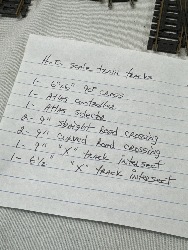 H-O scale train tracks
1- 6"x6" 90° cross
1- Atlas controller
1- Atlas selector
2- 9" straight road crossing
2- 9" curved road crossing
1- 9" "X" track intersect
1- 6½" "X" track intersect